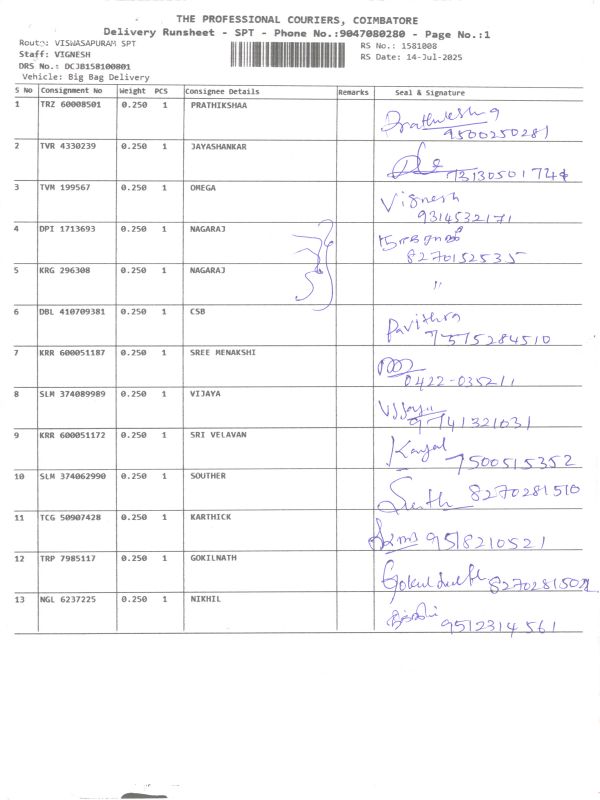 THE PROFESSIONAL COURIERS, COIMBATORE
Delivery Runsheet - SPT - Phone No.:9047080280 - Page No.:1
Route: VISWASAPURAM SPT
Staff: VIGNESH
DRS No.: DCJB158100801
Vehicle: Big Bag Delivery
RS No.: 1581008
RS Date: 14-Jul-2025
S No Consignment No Weight PCS Consignee Details Remarks Seal & Signature
1 TRZ 60008501 0.250 1 PRATHIKSHAA
9500250281
2 TVR 4330239 0.250 1 JAYASHANKAR
3 TVM 199567 0.250 1 OMEGA Vignesh
9314532171
4 DPI 1713693 0.250 1 NAGARAJ நாகராஜ்
8270152535
5 KRG 296308 0.250 1 NAGARAJ "
6 DBL 410709381 0.250 1 CSB Pavithra
7515284510
7 KRR 600051187 0.250 1 SREE MENAKSHI
0422-035211
8 SLM 374089989 0.250 1 VIJAYA Vijaya
9741321031
9 KRR 600051172 0.250 1 SRI VELAVAN
7500515352
10 SLM 374062990 0.250 1 SOUTHER 8270281510
11 TCG 50907428 0.250 1 KARTHICK 9518210521
12 TRP 7985117 0.250 1 GOKILNATH
13 NGL 6237225 0.250 1 NIKHIL
9512314561